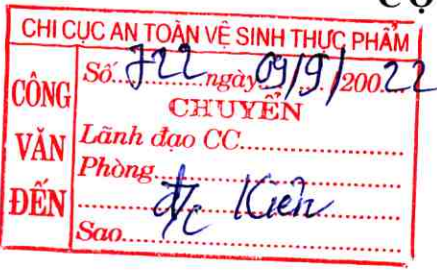 CỘ
CHI CỤC AN TOÀN VỆ SINH THỰC PHẨM
CÔNG VĂN ĐẾN
Số: 722 ngày 09/9/20022
CHUYỂN
Lãnh đạo CC
Phòng
đ/c Kiên
Sao